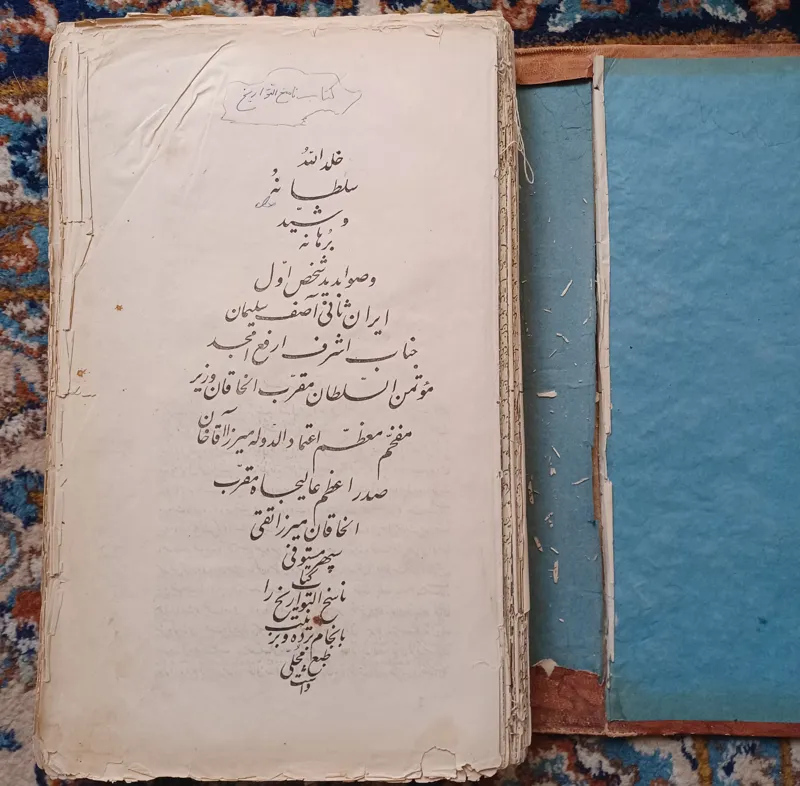 کتاب ناسخ التواریخ
خلد اللهُ
سلطانهُ
و شیّد
بُرهانه
و صوابدید شخص اوّل
ایران ثانی آصف سلیمان
جناب اشرف ارفع امجد
مؤتمن السّلطان مقرّب الخاقان وزیر
مفخّم معظّم اعتماد الدّوله میرزا آقاخان
صدر اعظم عالیجاه مقرّب
الخاقان میرزا تقی
سپهر مستوفی
کتاب
ناسخ التواریخ را
بانجام برده و بزینت
طبع محلّی
داشت